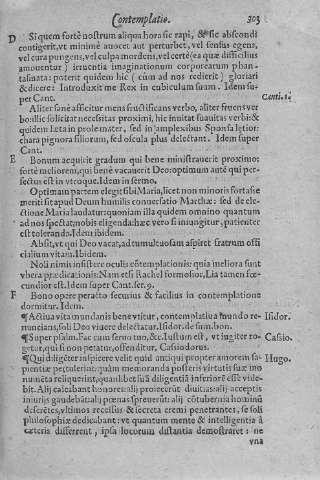 Contemplatio. 303
D Si quem fortè nostrum aliqua hora sic rapi, & sic abscondi
contigerit, vt minimè auocet aut perturbet, vel sensus egens,
vel cura pungens, vel culpa mordens, vel certè (ea quæ difficilius
amouentur) irruentia imaginationum corporearum phan-
tasmata: poterit quidem hic (cùm ad nos redierit) gloriari
& dicere: Introduxit me Rex in cubiculum suum. Idem su-
per Cant. Canti. 1.
Aliter sanè afficitur mens fructificans verbo, aliter fruens ver
bo: illic solicitat necessitas proximi, hic inuitat suauitas verbi: &
quidem læta in prole mater, sed in amplexibus Sponsa lætior:
chara pignora filiorum, sed oscula plus delectant. Idem super
Cant.
E Bonum acquirit gradum qui bene ministrauerit proximo:
fortè meliorem, qui bene vacauerit Deo: optimum autē qui per-
fectus est in vtroque. Idem in sermo.
Optimam partem elegit sibi Maria, licet non minoris fortasse
meriti sit apud Deum humilis conuersatio Marthæ: sed de ele-
ctione Maria laudatur: quoniam illa quidem omnino quantum
ad nos spectat, nobis eligenda: hæc vero si iniungitur, patienter
est toleranda. Idem ibidem.
Absit, vt qui Deo vacat, ad tumultuosam aspiret fratrum offi
cialium vitam. Ibidem.
Noli nimis insistere osculis cōtemplationis: quia meliora sunt
vbera prædicationis: Nam etsi Rachel formosior, Lia tamen fœ-
cundior est. Idem super Cant. ser. 9.
F Bono opere peracto securius & facilius in contemplatione
dormitur. Idem.
¶ Actiua vita mundanis bene vtitur, contemplatiua mundo re-
nuncians, soli Deo viuere delectatur. Isidor. de sum. bon. Isidor.
¶ Super psalm. Fac cum seruo tuo, &c. Iustum est, vt iugiter ro-
getur, qui si non petatur, offenditur. Cassiodorus. Cassio.
¶ Qui diligēter inspicere velit quid antiqui propter amorem sa-
pientiæ pertulerint, quàm memoranda posteris virtutis suæ mo
numēta reliquerint, quamlibet suā diligentiā inferiorē esse vide-
bit. Alij calcabant honores: alij proiecerūt diuitias: alij acceptis
iniurijs gaudebāt: alij pœnas spreuerūt: alij cōtubernia hominū
deserētes, vltimos recessus & secreta eremi penetrantes, se soli
philosophiæ dedicabant: vt quantum mente & intelligentia à
cæteris differrent, ipsa locorum distantia demonstraret: ne
Hugo.
vna